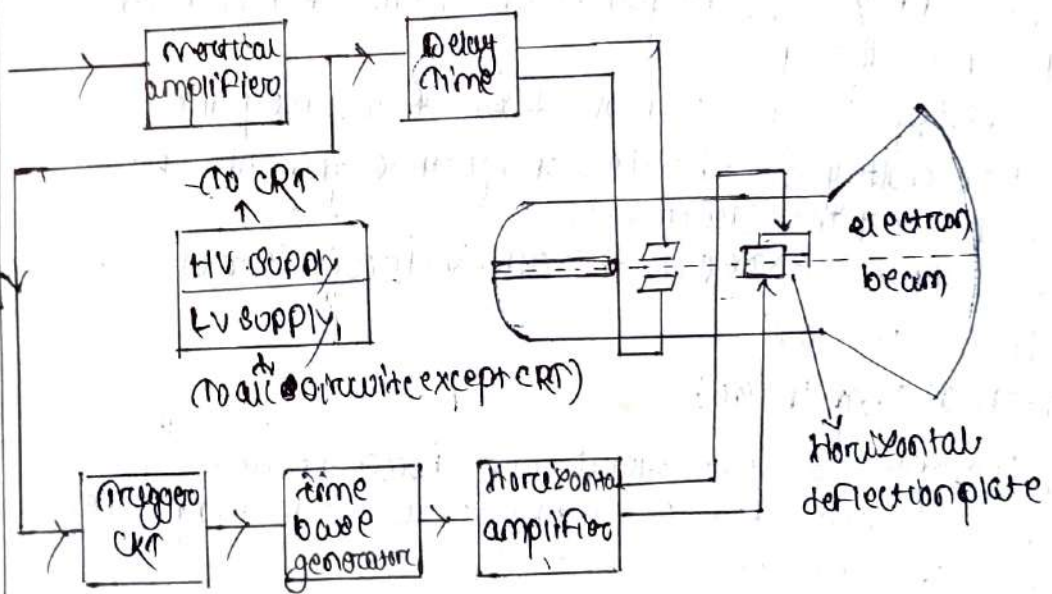 Vertical
amplifier
Delay
Time
To CRT
HV supply
LV supply
(To all circuits except CRT)
electron
beam
Horizontal
deflection plate
Trigger
CKT
time
base
generator
Horizontal
amplifier